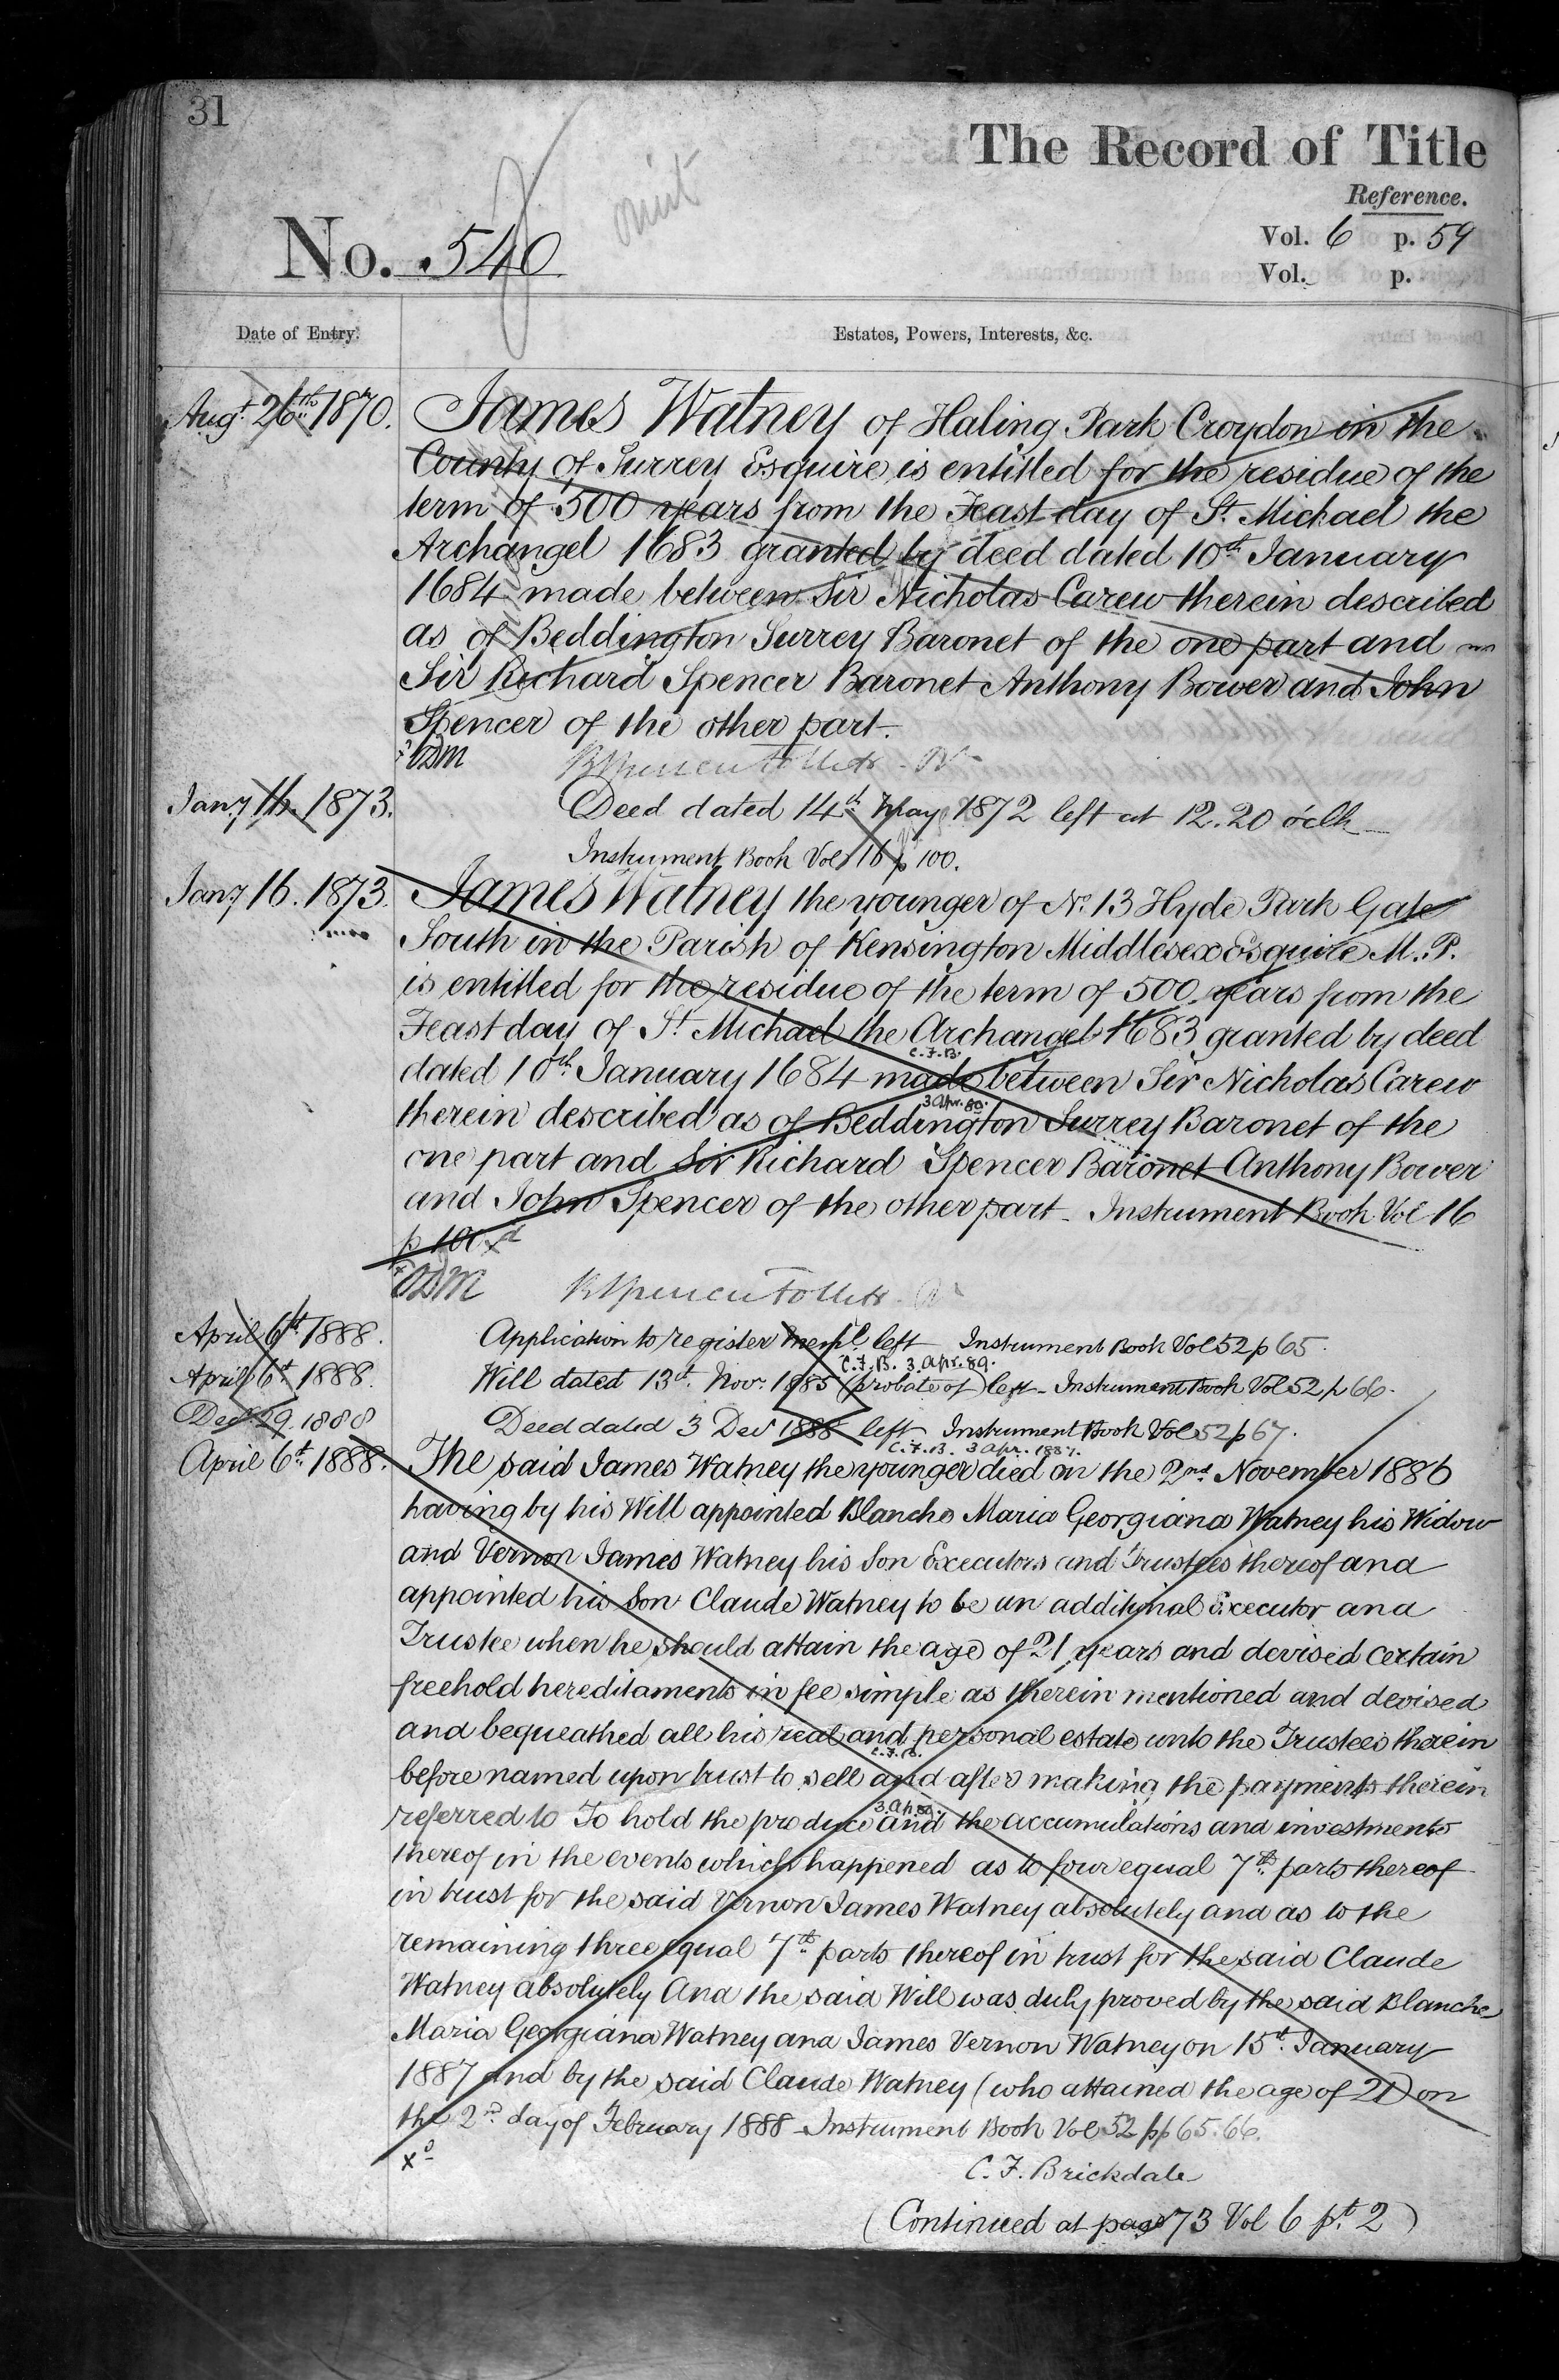 31
The Record of Title
Reference.
omit
No. 540
Vol. 6 p. 59
Vol. p.
Date of Entry.
Estates, Powers, Interests, &c.
Augt. 26th 1870.
James Watney of Haling Park Croydon in the
County of Surrey Esquire is entitled for the residue of the
term of 500 years from the Feast day of St. Michael the
Archangel 1683 granted by deed dated 10th January
1684 made between Sir Nicholas Carew therein described
as of Beddington Surrey Baronet of the one part and
Sir Richard Spencer Baronet Anthony Bower and John
Spencer of the other part.
Jany 16. 1873.
Deed dated 14th May 1872 left at 12.20 o'clk
Instrument Book Vol 16 p 100.
Jany 16. 1873.
James Watney the younger of No. 13 Hyde Park Gate
South in the Parish of Kensington Middlesex Esquire M.P.
is entitled for the residue of the term of 500 years from the
Feast day of St. Michael the Archangel 1683 granted by deed
C.F.B.
dated 10th January 1684 made between Sir Nicholas Carew
3 Apr. 89.
therein described as of Beddington Surrey Baronet of the
one part and Sir Richard Spencer Baronet Anthony Bower
and John Spencer of the other part – Instrument Book Vol 16
p 100
April 6th 1888.
Application to register left Instrument Book Vol 52 p 65.
C.F.B. 3 Apr. 89.
April 6th 1888.
Will dated 13th Nov. 1885 (probate of) left – Instrument Book Vol 52 p 66.
Decr 29. 1888
Deed dated 3 Decr 1888 left Instrument Book Vol 52 p 67.
C.F.B. 3 Apr. 1889.
April 6th 1888.
The said James Watney the younger died on the 2nd November 1886
having by his Will appointed Blanche Maria Georgiana Watney his Widow
and Vernon James Watney his Son Executors and Trustees thereof and
appointed his Son Claude Watney to be an additional Executor and
Trustee when he should attain the age of 21 years and devised certain
freehold hereditaments in fee simple as therein mentioned and devised
and bequeathed all his real and personal estate unto the Trustees therein
C.F.B.
before named upon trust to sell and after making the payments therein
3. Ap. 89.
referred to To hold the produce and the accumulations and investments
thereof in the events which happened as to four equal 7th parts thereof
in trust for the said Vernon James Watney absolutely and as to the
remaining three equal 7th parts thereof in trust for the said Claude
Watney absolutely And the said Will was duly proved by the said Blanche
Maria Georgiana Watney and James Vernon Watney on 15th January
1887 and by the said Claude Watney (who attained the age of 21) on
the 2nd day of February 1888 – Instrument Book Vol 52 pp 65.66.
C.F. Brickdale
(Continued at page 73 Vol 6 pt. 2)